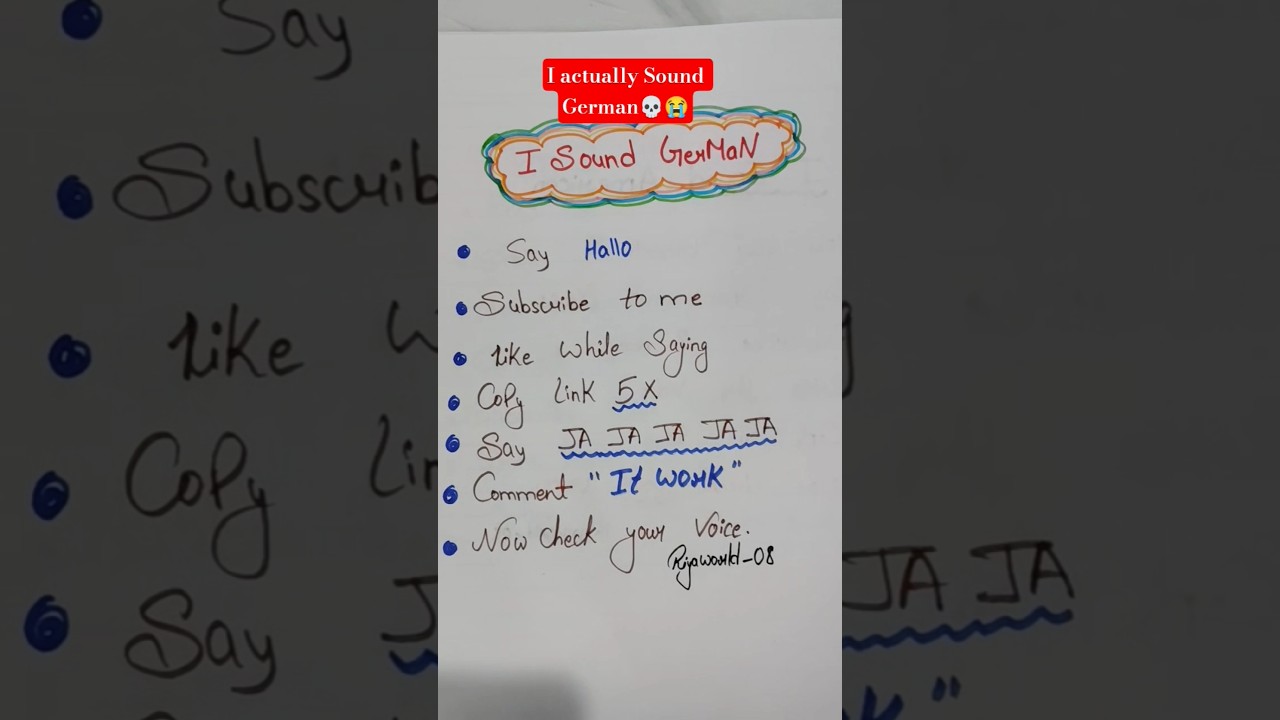 I actually Sound
German💀😭
I Sound GerMaN
Say Hallo
Subscribe to me
Like While Saying
Copy link 5 X
Say JA JA JA JA JA
Comment "It work"
Now check your Voice.
Riyaworld-08
Say
Subscrib
Like W
g
Copy lin
Say J
JA JA
k"